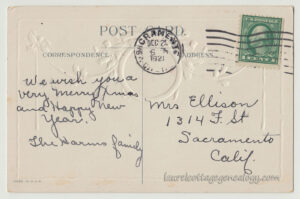 POST CARD.
CORRESPONDENCE
SACRAMENTO
1921
We wish you a
very Merry Xmas
and Happy New
Year.
The Harms family
Mrs Ellison
1314 F. St
Sacramento
Calif.
laurelcottagegenealogy.com